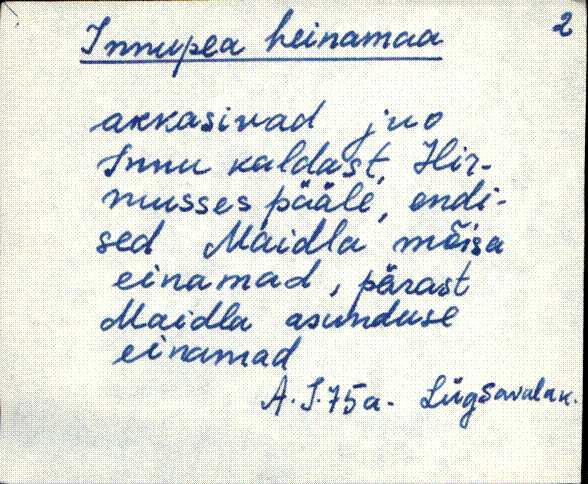 2
Innupea heinamaa
akkasivad juo
Innu kaldast, Hir-
musses pääle, endi-
sed Maidla mõisa
einamad, pärast
Maidla asunduse
einamad
A. I. 75a. Lügsavalak.